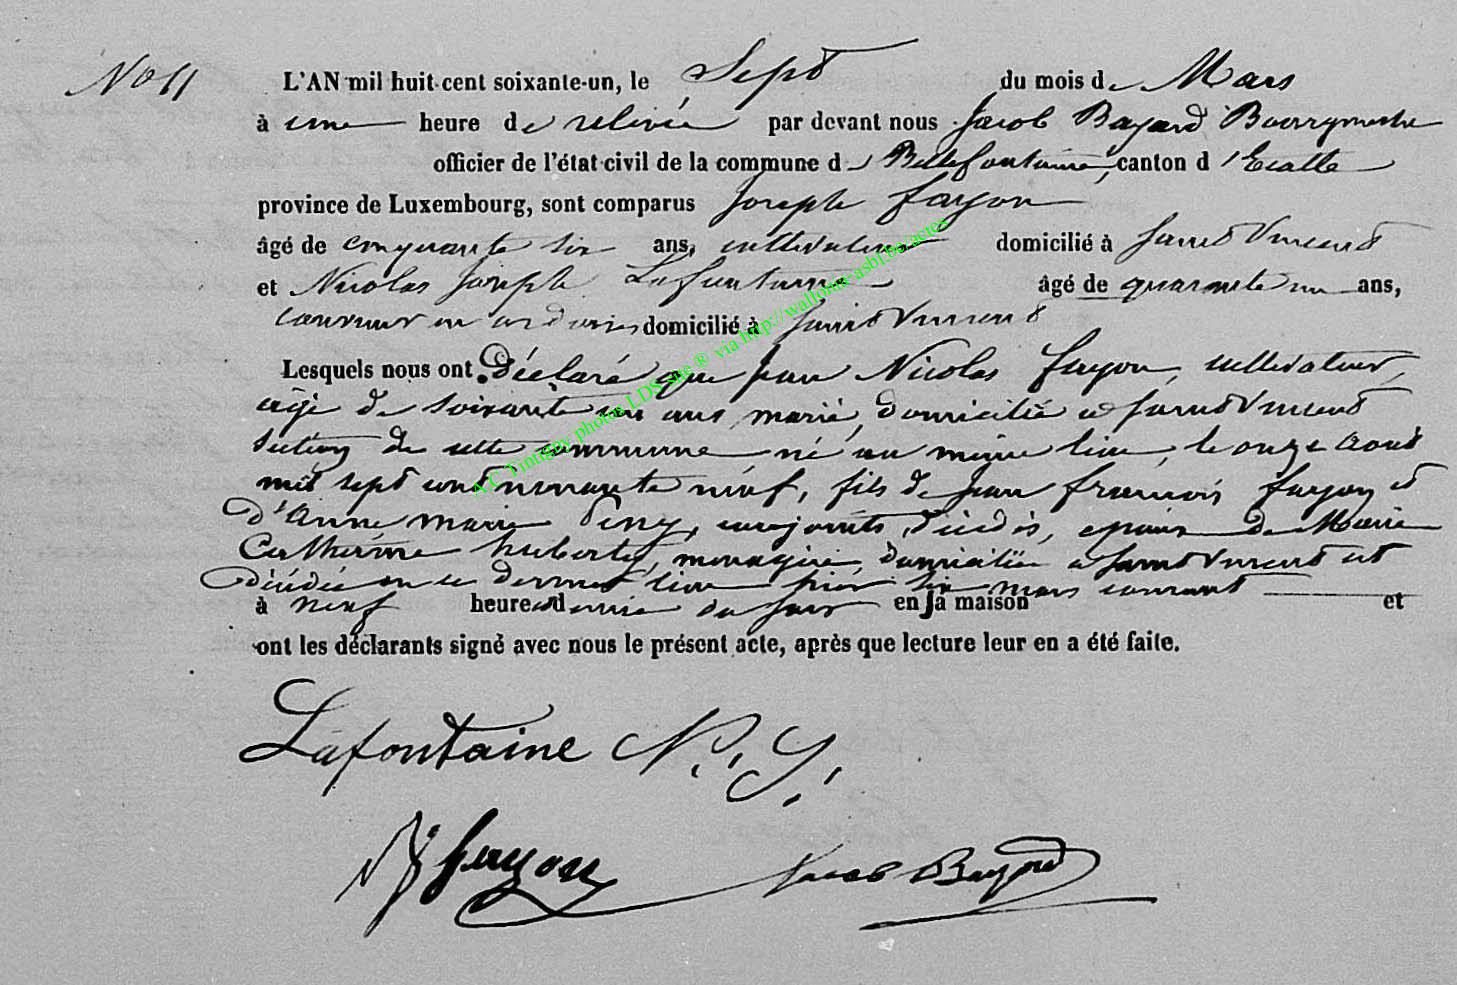 No 11
L'AN mil huit cent soixante-un, le Sept du mois de Mars
à une heure de relevée par devant nous Jacob Bayard Bourgmestre
officier de l'état civil de la commune de Bellefontaine, canton d'Etalle
province de Luxembourg, sont comparus Joseph fayon
âgé de cinquante six ans, cultivateur domicilié à Saint Vincent
et Nicolas Joseph Lafontaine âgé de quarante un ans,
couvreur en ardoises domicilié à Saint Vincent
Lesquels nous ont Déclaré que Jean Nicolas fayon, cultivateur,
agé de soixante un ans marié, domicilié a Saint Vincent
section de cette commune né au même lieu, le onze aout
mil sept cent nonante neuf, fils de Jean francois fayon et
d'Anne marie conjoints décédés, epoux de Marie
Catherine huberty, menagère, domiciliée a Saint Vincent est
décédé en ce dernier lieu hier six mars courant
à neuf heures demie du soir en sa maison et
ont les déclarants signé avec nous le présent acte, après que lecture leur en a été faite.
A C Tintigny photos LDS site ® via http://wallonia-asbl.be/actes
Lafontaine N. J.
fayon Jacob Bayard